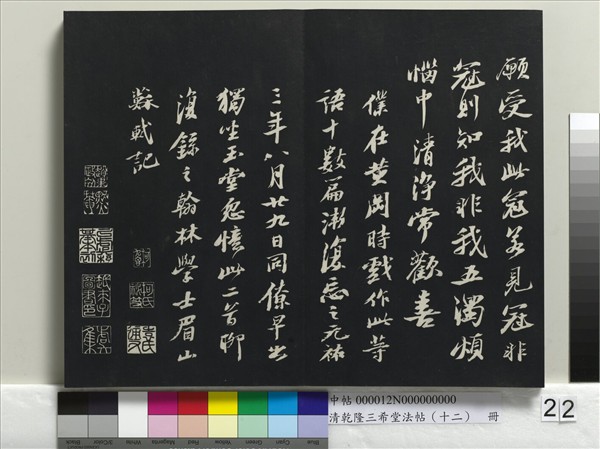 願受我此冠若見冠非
冠則知我非我五濁煩
惱中清淨常歡喜
僕在黄岡時戲作此等
語十數篇漸復忘之元祐
三年八月廿九日同僚早出
獨坐玉堂忽憶此二首聊
復録之翰林學士眉山
蘇軾記
中帖 000012N000000000
清乾隆三希堂法帖（十二） 冊
22
Black
3/Color
White
Magenta
Red
Yellow
Green
Cyan
Blue